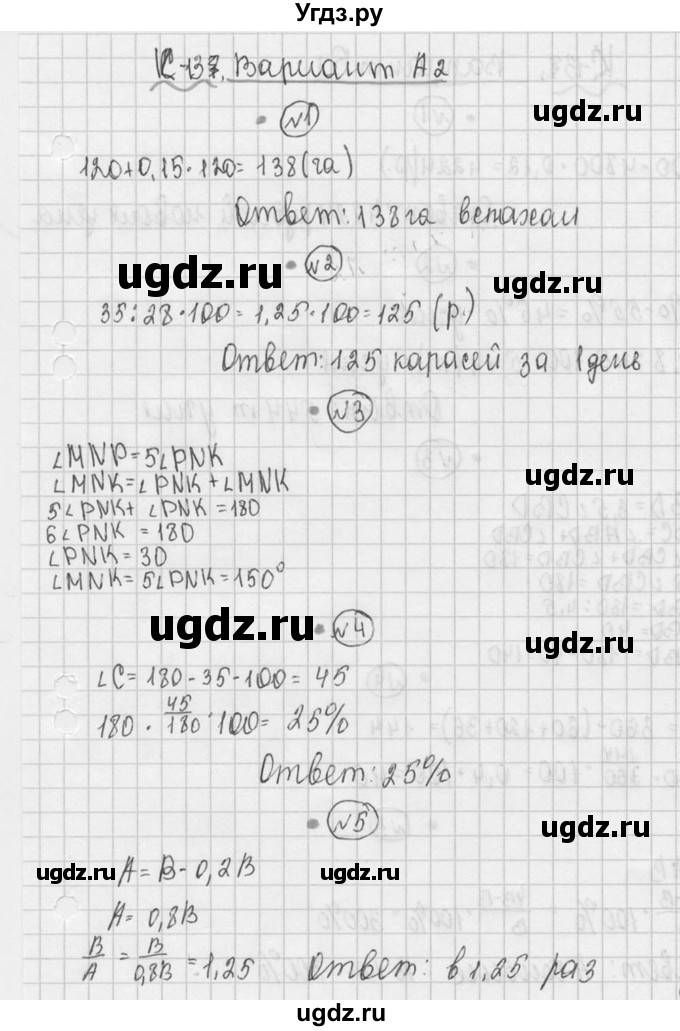 Угдз.ру
К-37, Вариант А2
№1
120+0,15·120=138(га)
Ответ: 138га вспахали
ugdz.ru ugdz.ru
№2
35:28·100=1,25·100=125 (р.)
ugdz.ru
Ответ: 125 карасей за 1 день
№3
∠MNP=5∠PNK
∠MNK=∠PNK+∠MNK
ugdz.ru
5∠PNK+∠PNK=180
6∠PNK=180
∠PNK=30
∠MNK=5∠PNK=150°
ugdz.ru
№4
ugdz.ru
∠C=180-35-100=45
180·45/180·100=25%
Ответ: 25%
№5
ugdz.ru
ugdz.ru
A=B-0,2B
ugdz.ru
A=0,8B
B/A=B/0,8B=1,25 Ответ: в 1,25 раз
Угдз.ру